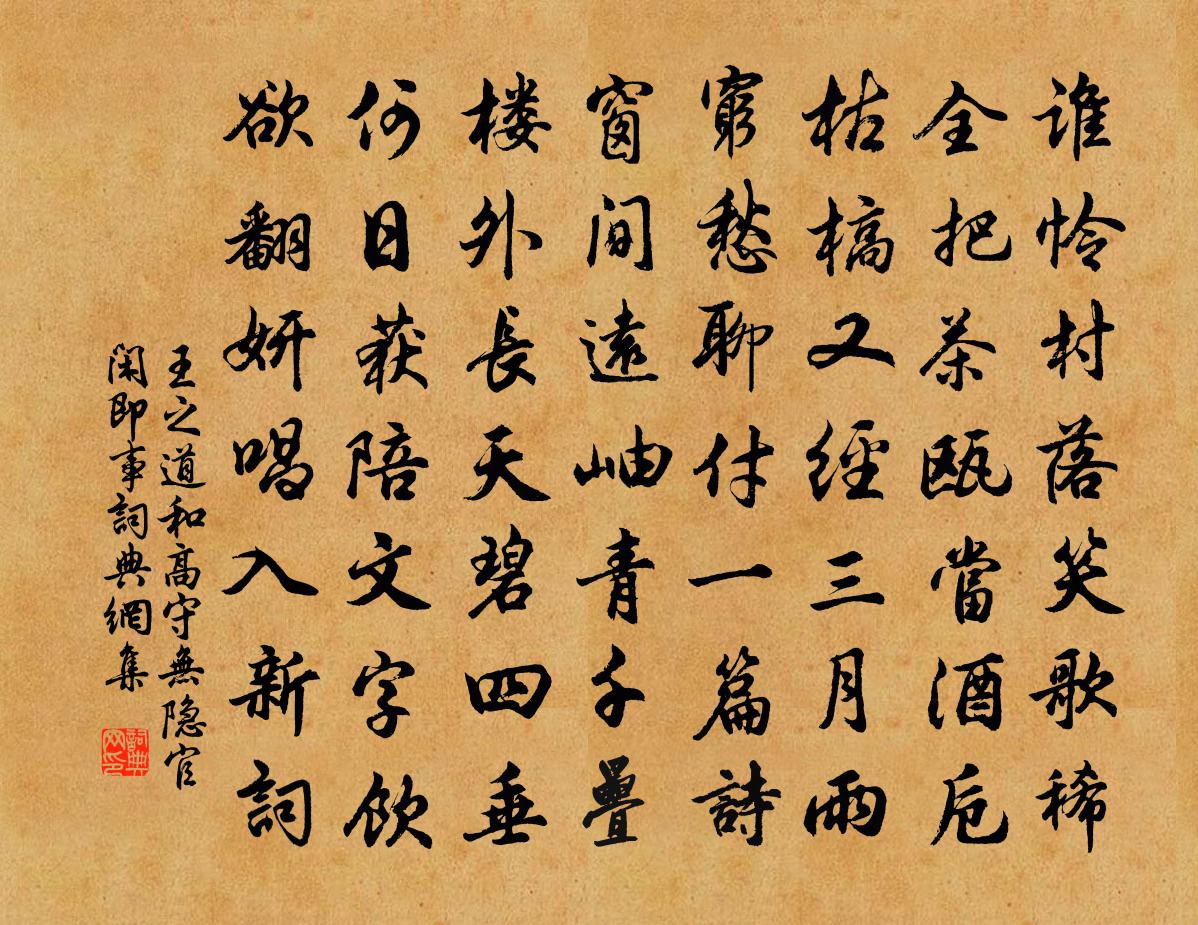 谁怜村落笑歌稀
全把茶瓯當酒卮
枯槁又經三月雨
窮愁聊付一篇詩
窗间遠岫青千疊
楼外長天碧四垂
何日获陪文字飲
欲翻妍唱入新詞
王之道和高守無隐官
闲即事詞典網集
詞典网印